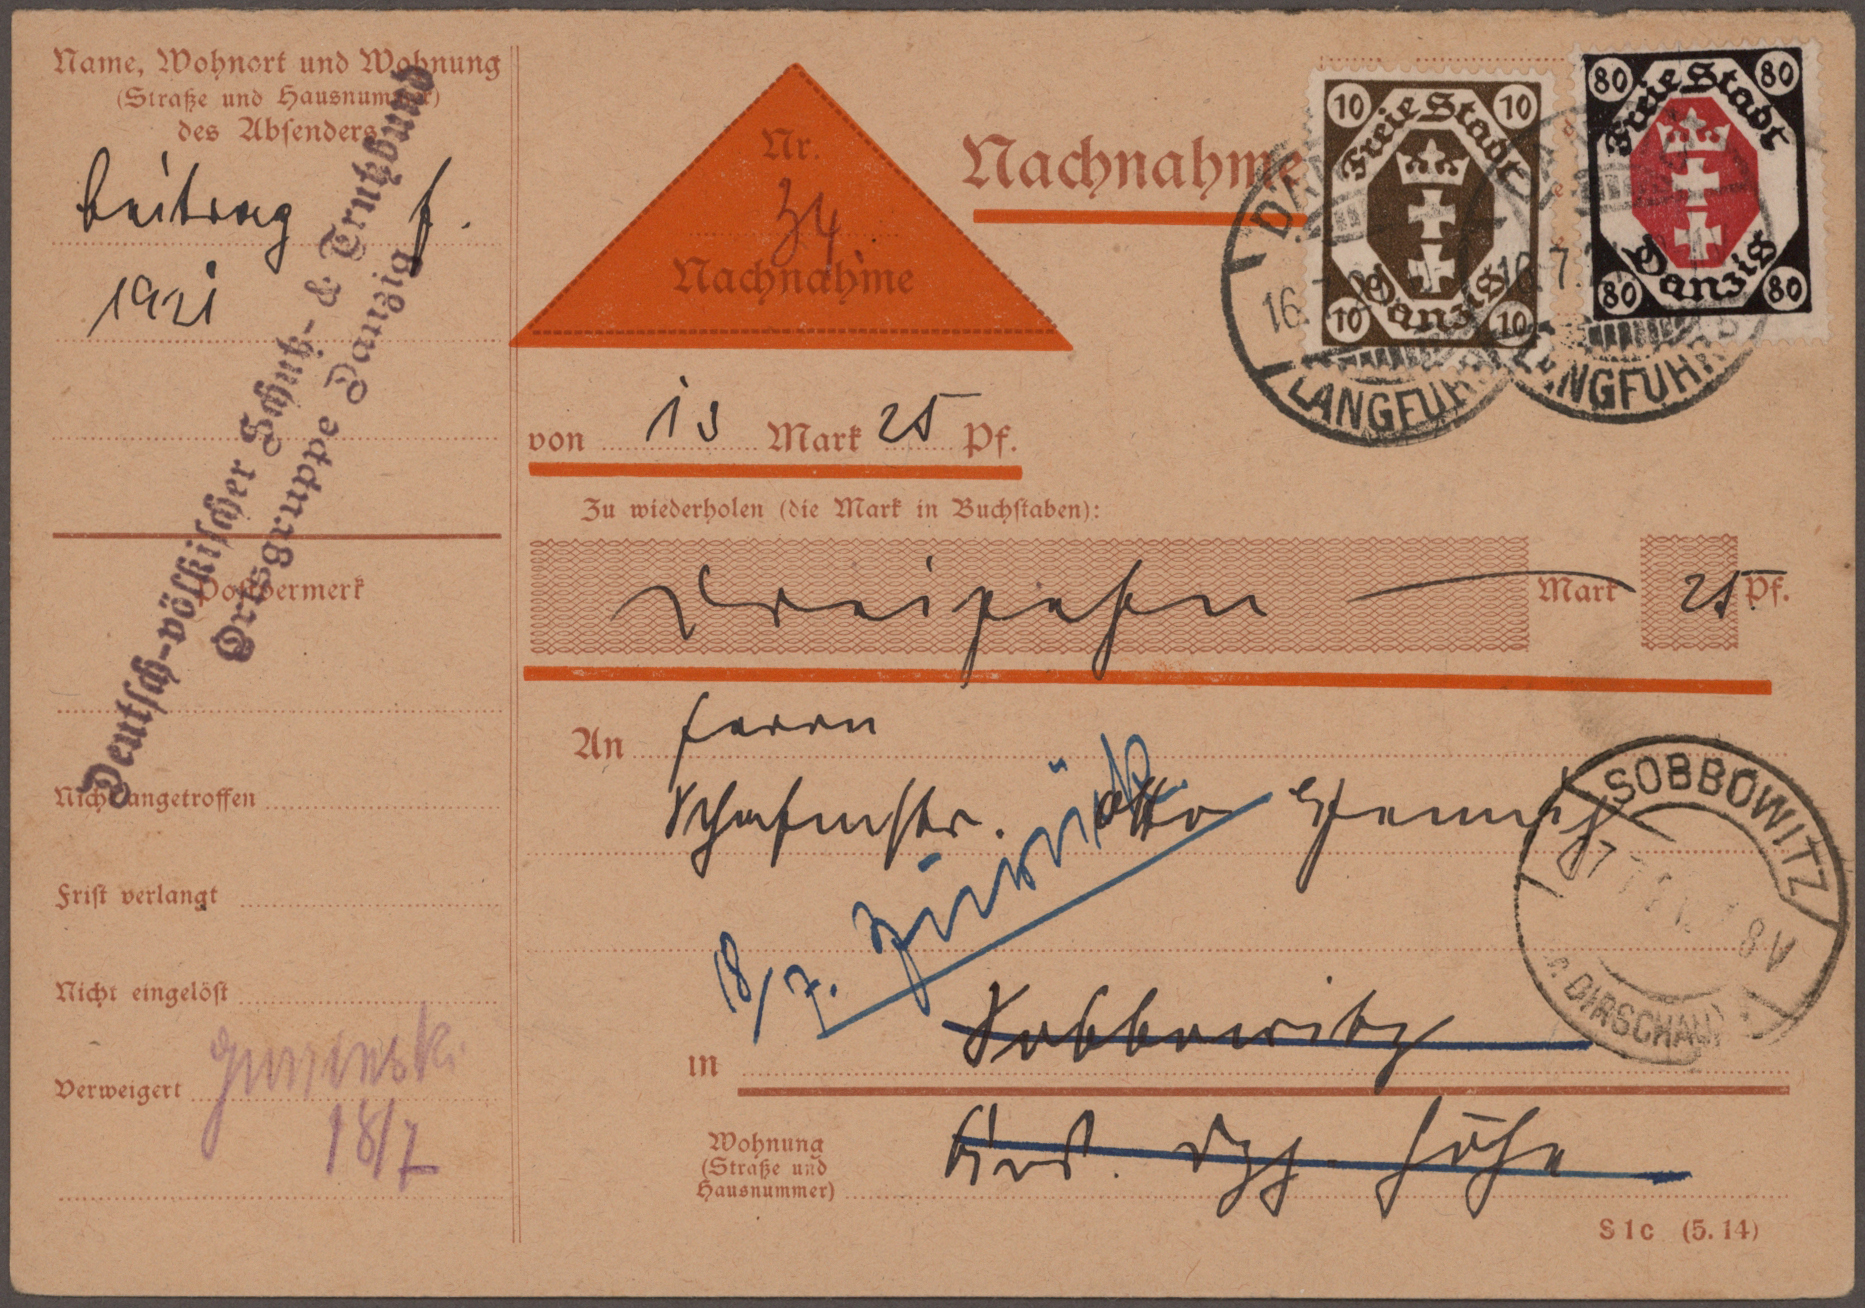 Name, Wohnort und Wohnung
(Straße und Hausnummer)
des Absenders
Beitrag f.
1921
Deutsch-völkischer Schutz- & Trutzbund
Ortsgruppe Danzig
Postvermerk
Nicht angetroffen
Frist verlangt
Nicht eingelöst
Verweigert
18/7
Nr.
34
Nachnahme
Nachnahme
10 Freie Stadt 10
10 Danzig 10
80 Freie Stadt 80
80 Danzig 80
16.7
LANGFUHR
16.7
LANGFUHR
von 13 Mark 25 Pf.
Zu wiederholen (die Mark in Buchstaben):
Dreizehn Mark 25 Pf.
An Herrn
Otto
zurück
18/7.
SOBBOWITZ
17 7 8V
(DIRSCHAU)
in Sobbowitz
Wohnung
(Straße und
Hausnummer)
Krs. Dzg. Höhe
S 1c (5. 14)